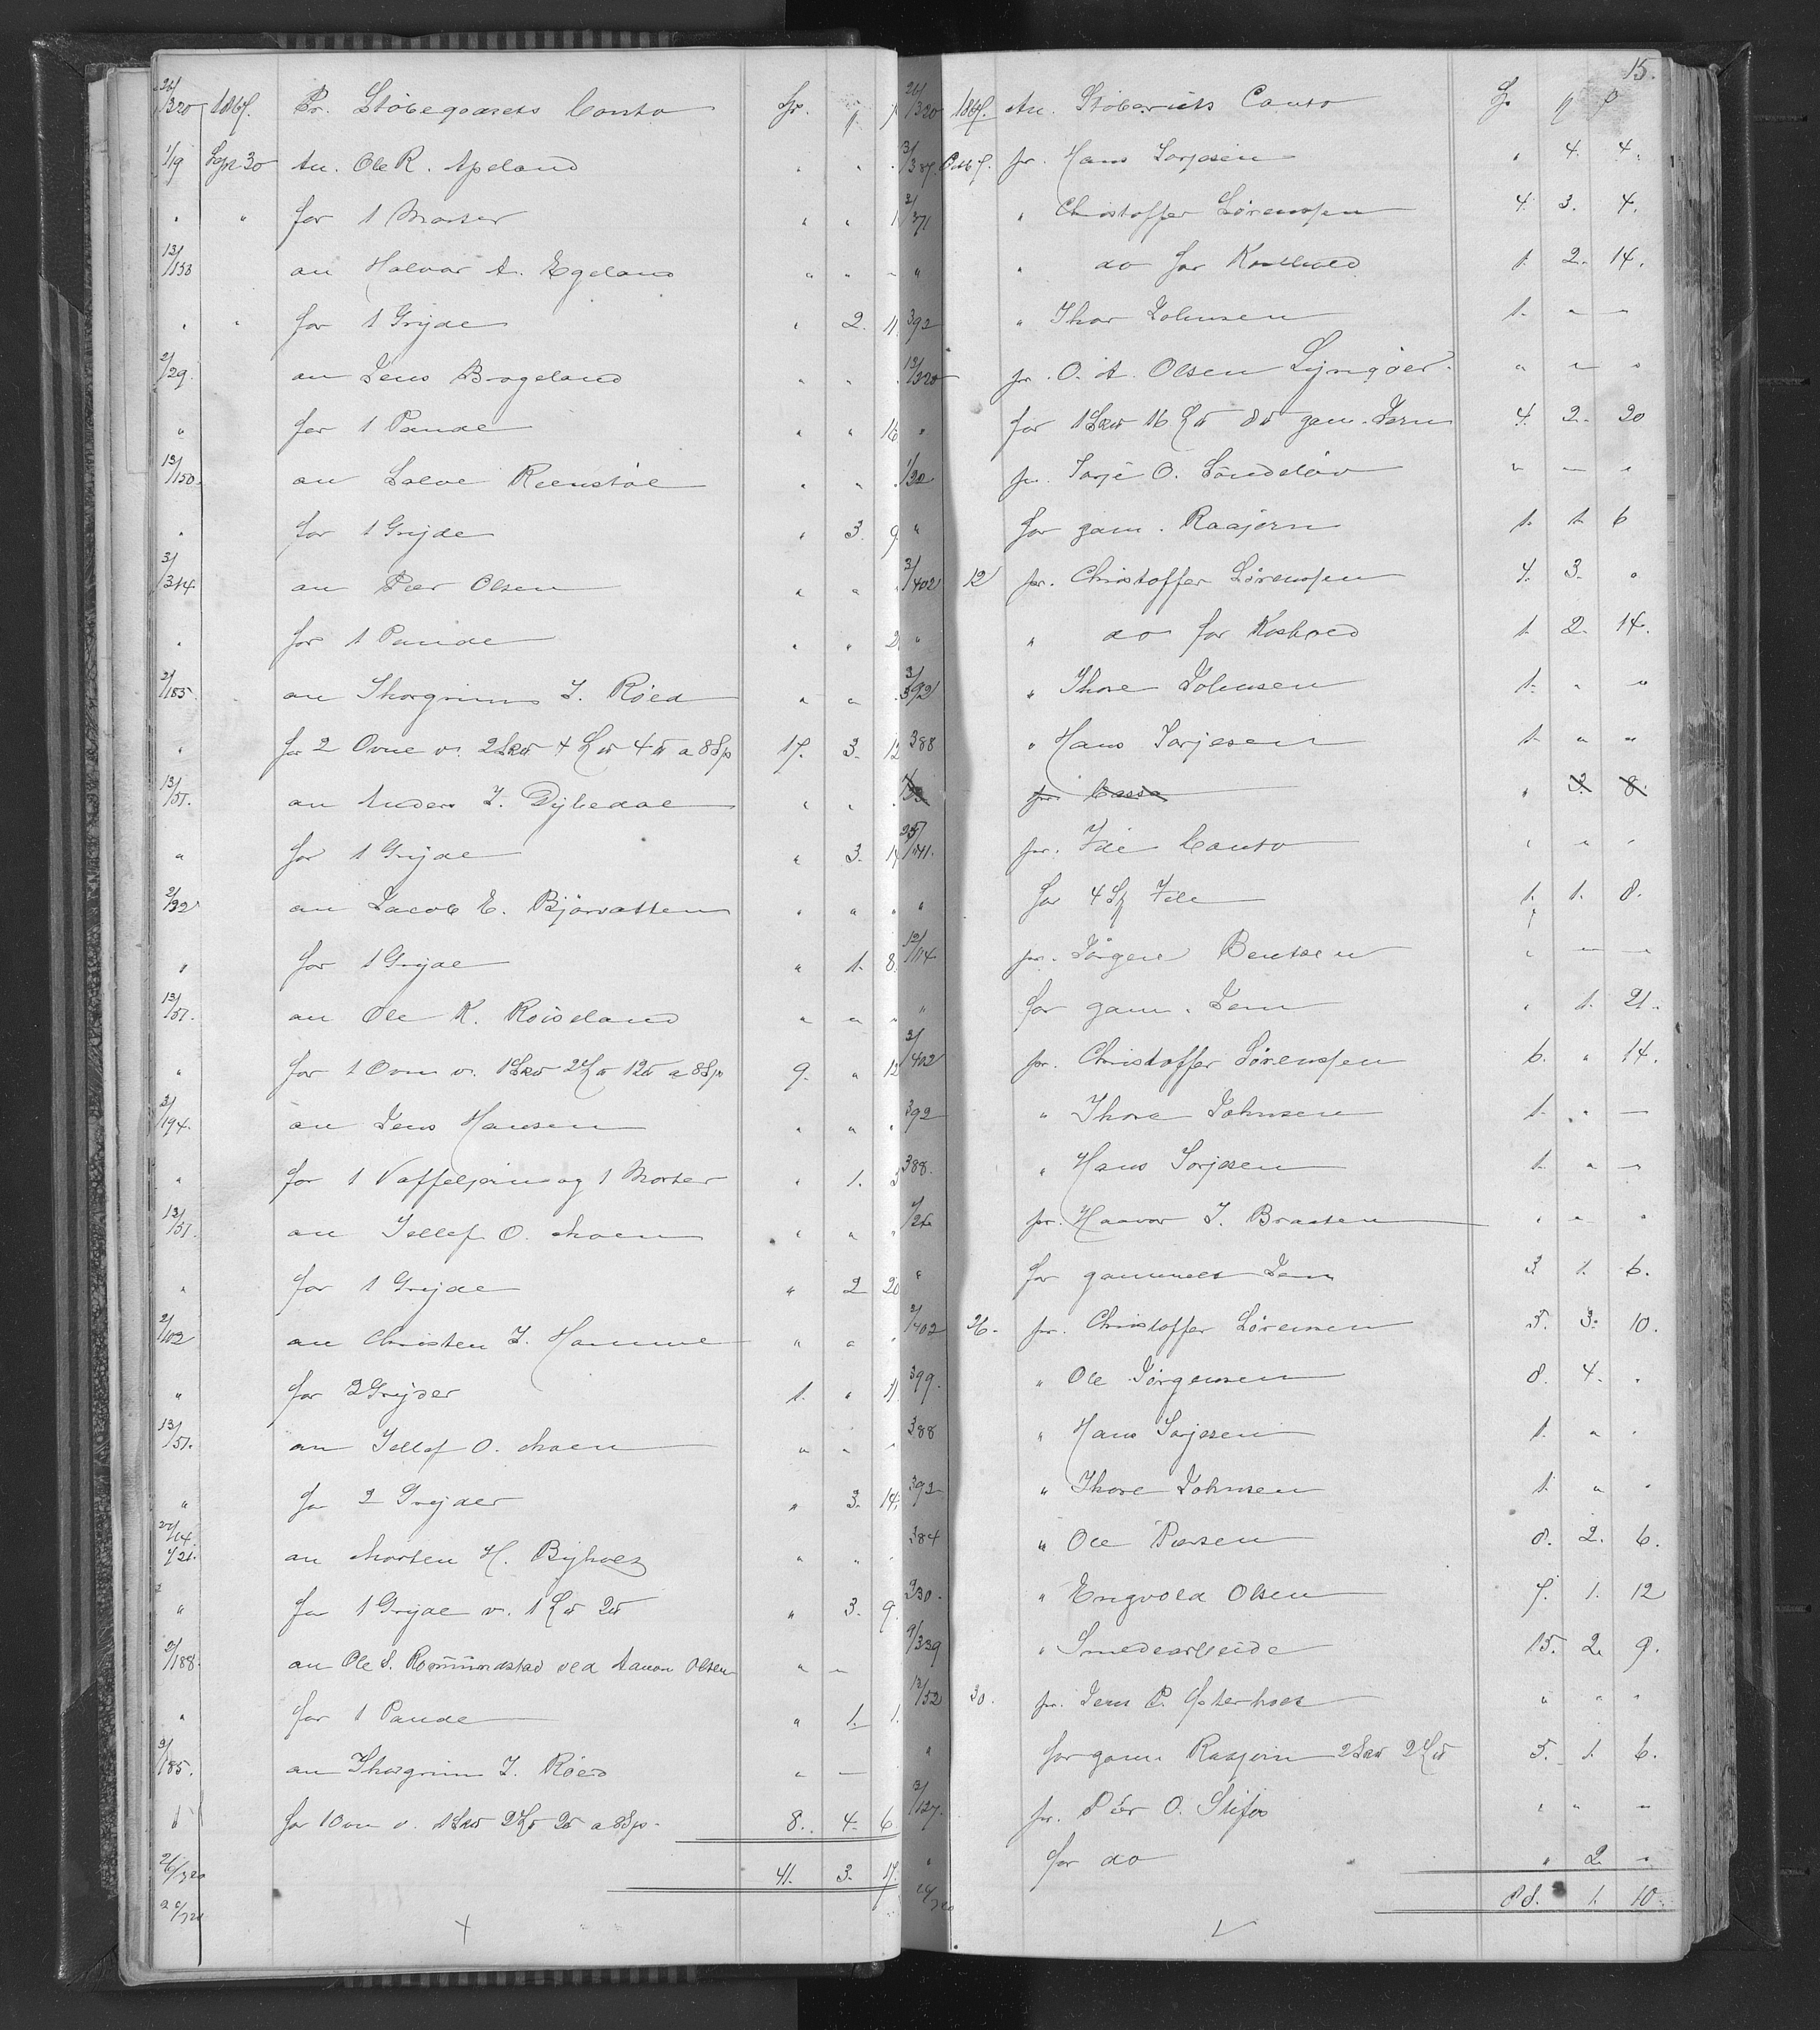 26/320 1867. Pr. Støbegodsets Conto Sp. ₰ β
1/9 Sept 30 An. Ole R. Apeland " " "
" " for 1 Morter " " 1
13/158 an Halvor A. Egeland " " "
" " for 1 Gryde " 2. 11.
2/29. an Jens Brageland " " "
" for 1 Pande " " 16
13/150. an Salve Reenstøl " " "
" for 1 Gryde " 3. 9
3/314 an Peer Olsen " " "
" for 1 Pande " " 2
2/185. an Thorgrim J. Røed " " "
" for 2 Ovne v. 2 Sk℔ 4 L℔ 4 ℔ a 8 Sp 17. 3. 12
13/57. an Anders J. Dybedal " " "
" for 1 Gryde " 3. 14
2/32 an Jacob E. Bjørvatten " " "
" for 1 Gryde " 1. 8.
13/57. an Ole K. Røiseland " " "
" for 1 Ovn v. 1 Sk℔ 2 L℔ 12 ℔ a 8 Sp 9. " 12
3/194. an Jens Hansen " " "
" for 1 Vaffeljern og 1 Morter " 1. 3
13/57. an Tellef O. Moen " " "
" for 1 Gryde " 2 20
2/102 an Christen J. Hamme " "
" for 2 Gryder 1. " 11.
13/57. an Tellef O. Moen " " "
" for 2 Gryder " 3. 14.
1/21. an Morten H. Byholt " " "
" for 1 Gryde v. 1 L℔ 2 ℔ " 3. 9.
2/188. an Ole S. Rommundstad ved Aanon Olsen " "
" for 1 Pande " 1. 1.
2/185. an Thorgrim J. Røed " "
for 1 Ovn v. 1 Sk℔ 2 L℔ 2 ℔ a 8 Sp. 8. 4. 6
26/320 41. 3. 17.
15.
26/320 1867. An. Støberiets Conto Sp ₰ β
3/387. Octb 7. pr. Hans Torjesen " 4. 4.
3/371 " Christoffer Sørensen 4. 3. 4.
" " do for Kosthold 1. 2. 14.
392 " Thor Johnsen 1. " "
13/320 pr. O. A. Olsen Lyngøer. " " "
" for 1 Sk℔ 16 L℔ 8 ℔ gam. Jern 4. 2. 20
1/32 pr. Torje O. Sundsløv " " "
" for gam. Raajern 1. 1. 6
3/402 12 pr. Christoffer Sørensen 4. 3. "
" " do for Kosthold 1. 2. 14.
3/392 " Thore Johnsen 1. " "
388 " Hans Torjesen 1. " "
pr. Cassa " 3. 8.
25/141. pr. Ilde Conto " " "
" for 4 Ilde 1. 1. 8.
13/114 pr. Jørgen Bentsen " " "
" for gam. Jern " 1. 21.
3/402 pr. Christoffer Sørensen 6. " 14.
392 " Thore Johnsen 1. " "
388. " Hans Torjesen 1. " "
pr. Haavor J. Braaten " " "
" for gammelt Jern 3 1. 6.
3/402 26. pr. Christoffer Sørensen 5. 3. 10.
399. " Ole Jørgensen 8. 4. "
388 " Hans Torjesen 1. " "
392 " Thore Johnsen 1. " "
384 " Ole Persen 8. 2. 6.
330. " Engvold Olsen 7. 1. 12
9/339 " Smedearbeide 15. 2. 9.
13/52 30. pr. Jens P. Østerholt " " "
" for gam. Raajern 2 Sk℔ 2 L℔ 5. 1. 6.
3/127. pr. Peer O. Stifos " " "
" for do " 2. "
88. 1. 10.